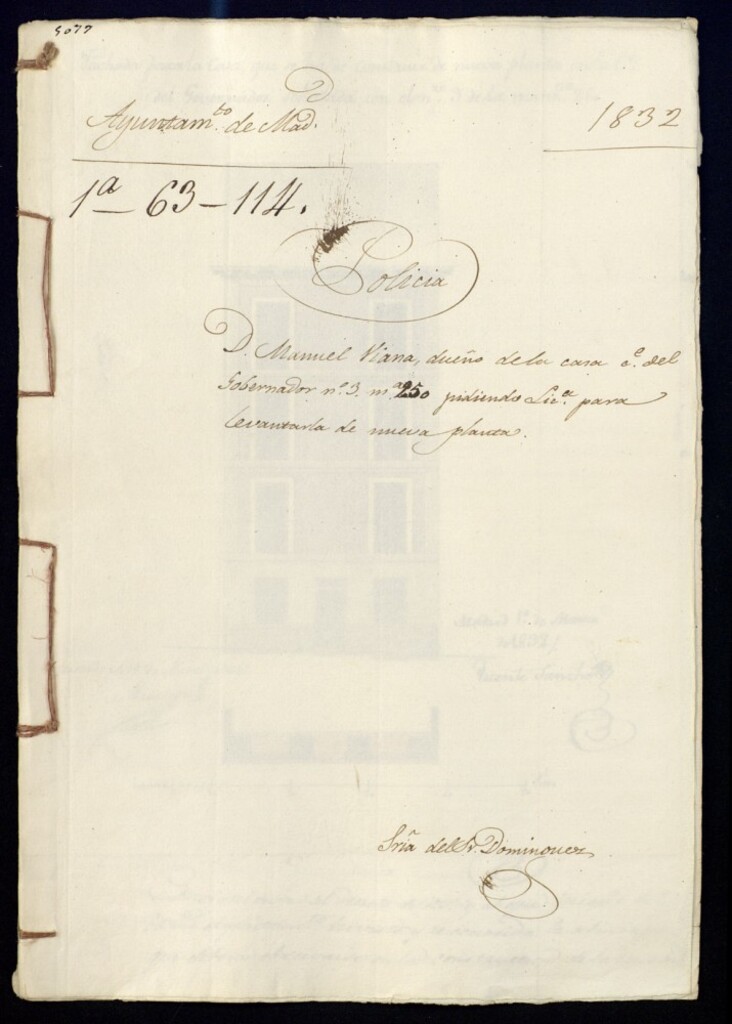 5077
Ayuntam.to de Mad.
1832
1a-63-114.
Policia
D. Manuel Viana, dueño de la casa c.e del
Gobernador n.o 3. m.a 250 pidiendo Lic.a para
levantarla de nueva planta.
Sria del Sr. Dominguez